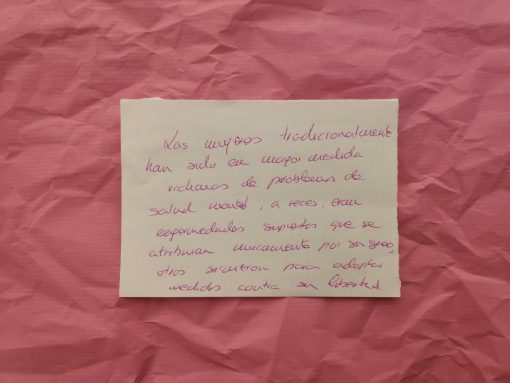 Las mujeres tradicionalmente
han sido en mayor medida
victimas de problemas de
salud mental, a veces, eran
enfermedades supuestas que se
atribuian unicamente por su sexo,
otros sirvieron para adoptar
medidas contra su libertad